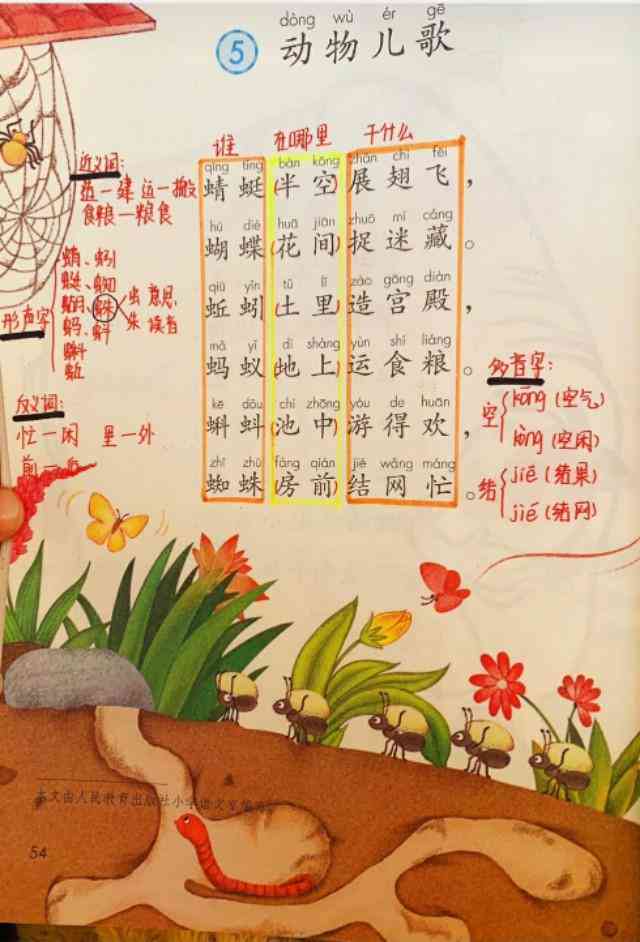 dòng wù ér gē
5 动物儿歌
谁 在哪里 干什么
qīng tíng bàn kōng zhǎn chì fēi
蜻蜓(半空)展翅飞，
hú dié huā jiān zhuō mí cáng
蝴蝶(花间)捉迷藏。
qiū yǐn tǔ lǐ zào gōng diàn
蚯蚓(土里)造宫殿，
mǎ yǐ dì shàng yùn shí liáng
蚂蚁(地上)运食粮。
kē dǒu chí zhōng yóu de huān
蝌蚪(池中)游得欢，
zhī zhū fáng qián jié wǎng máng
蜘蛛(房前)结网忙。
近义词：
造—建 运—搬
食粮—粮食
形声字
蜻、蚓
蜓、蜘
蝴、蛛
蚂、蚪
蝌
蚯
虫 意思
朱 读音
反义词：
忙—闲 里—外
前—
多音字：
空
kōng(空气)
kòng(空闲)
结
jiē(结果)
jié(结网)
本文由人民教育出版社小学语文室编
54